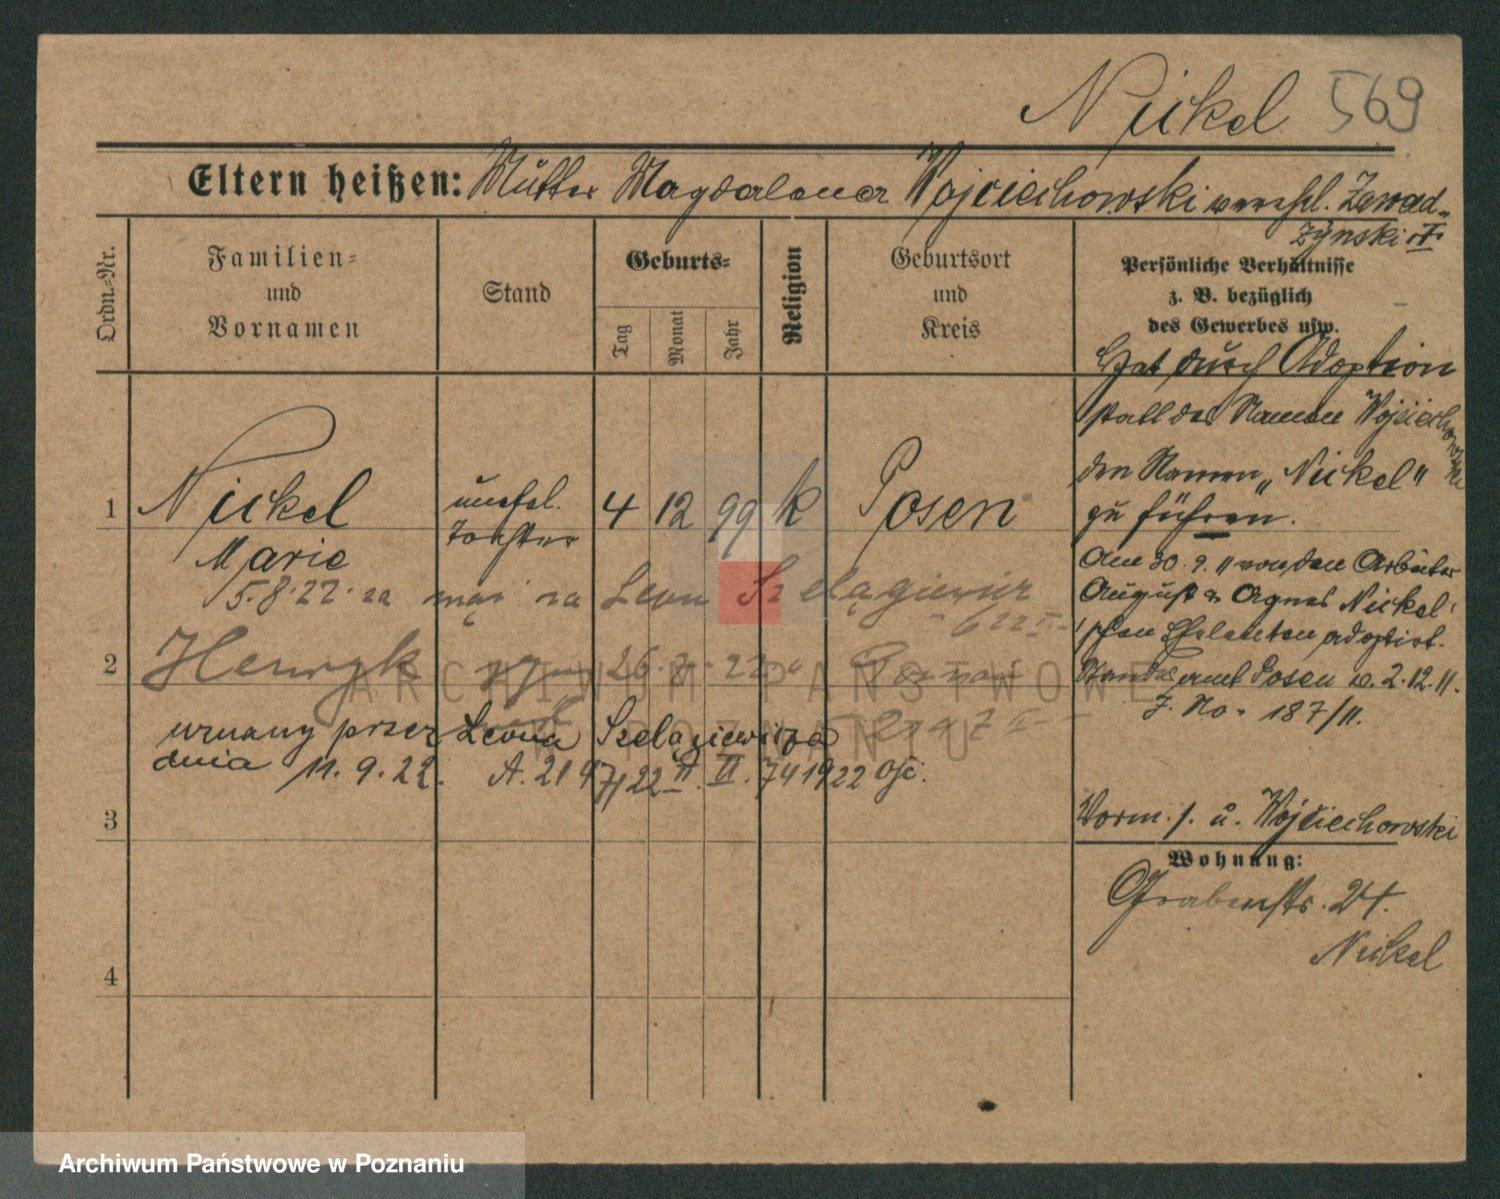 Nickel 569
Eltern heißen: Mutter Magdalena Wojciechowski verehl. Zawad-
zynski
Ordn.-Nr.
Familien-
und
Vornamen
Stand
Geburts-
Tag
Monat
Jahr
Religion
Geburtsort
und
Kreis
Persönliche Verhältnisse
z. B. bezüglich
des Gewerbes usw.
Hat durch Adoption
statt des Namen Wojciechowski
den Namen „Nickel"
zu führen.
Am 30. 9. 11 von den Arbeiter
August u. Agnes Nickel
schen Eheleuten adoptirt.
Standesamt Posen v. 2.12.11.
J. No. 187/11.
Vorm. s. u. Wojciechowski
1 Nickel unehel. 4 12 99 k Posen
Marie Tochter
5.8.22 za mąż za Leon Szelągiewicz
2 Henryk syn 26. 22 Poznań
uznany przez Leona Szelągiewicza
dnia 11. 9. 22. A. 2147/22 II. VI. 74 1922
3
4
Wohnung:
Grabenstr. 24.
Nickel
ARCHIWUM PAŃSTWOWE
W POZNANIU
Archiwum Państwowe w Poznaniu